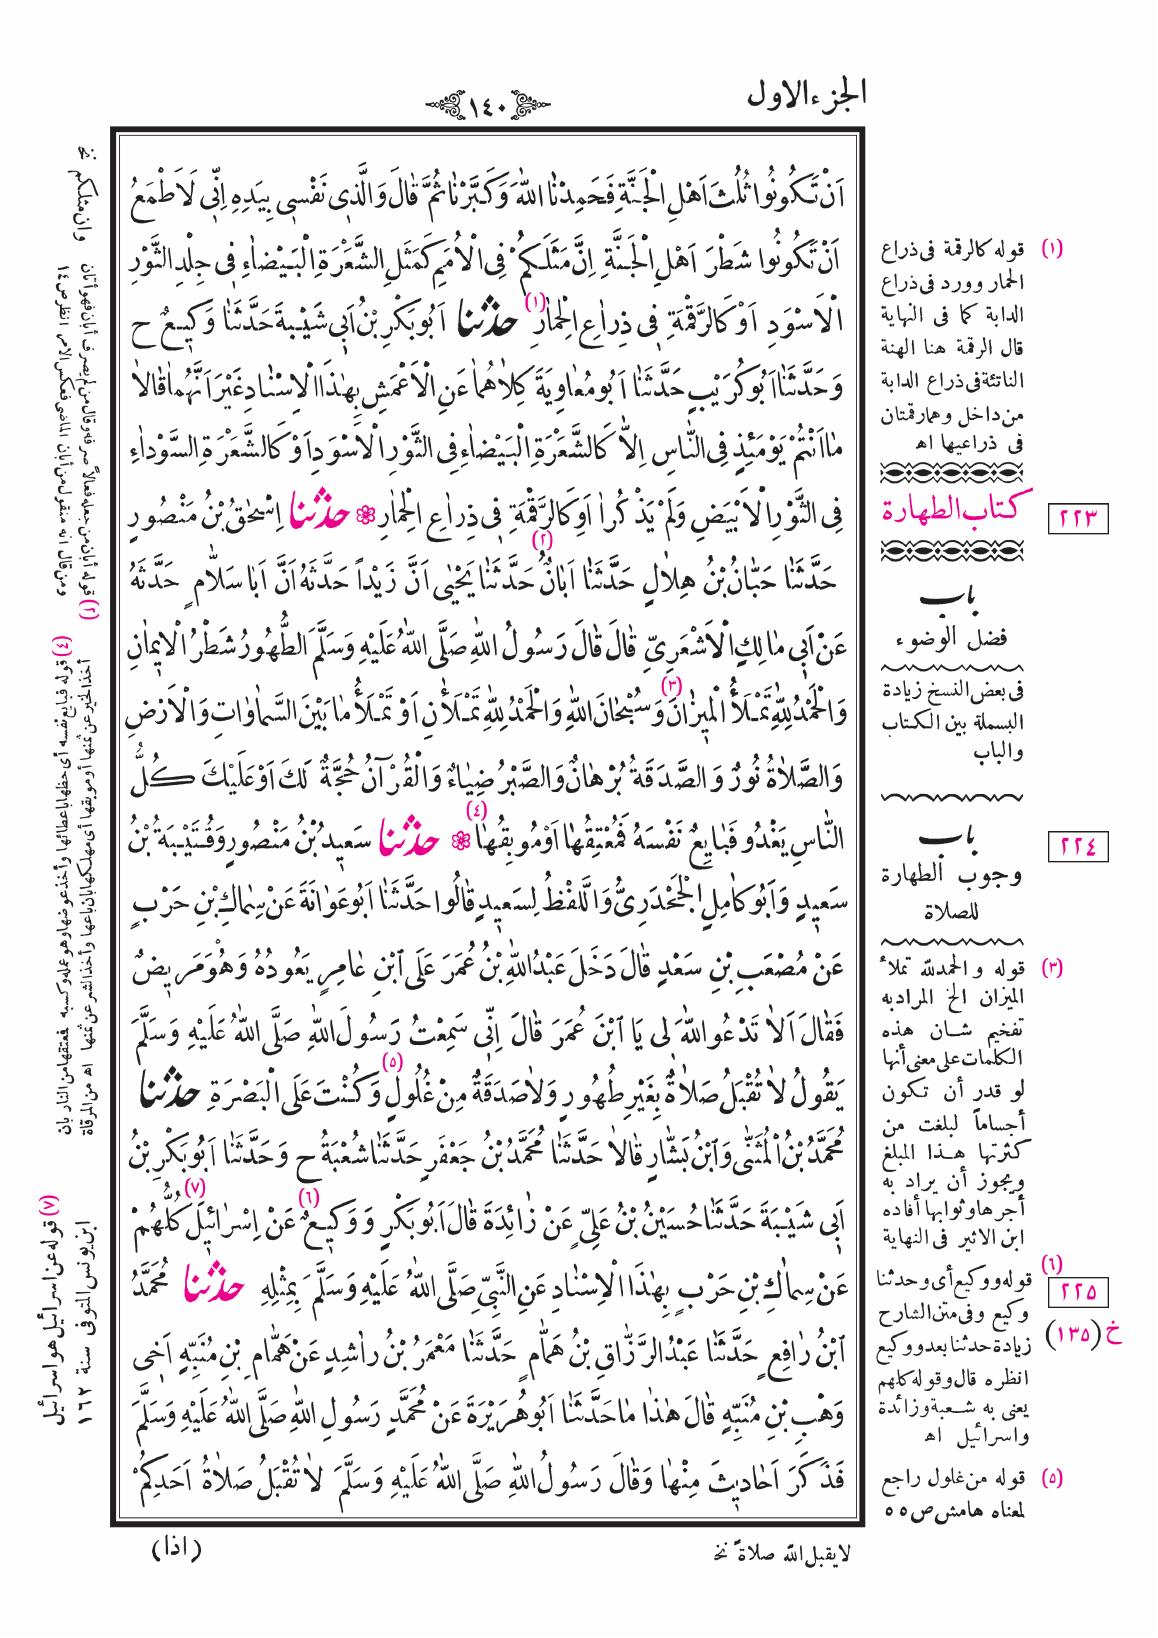 الجزء الاول
١٤٠
اَنْ تَكُونُوا ثُلُثَ اَهْلِ الْجَنَّةِ فَحَمِدْنَا اللّٰهَ وَكَبَّرْنَا ثُمَّ قَالَ وَالَّذِى نَفْسِى بِيَدِهِ اِنِّى لَاَطْمَعُ
اَنْ تَكُونُوا شَطْرَ اَهْلِ الْجَنَّةِ اِنَّ مَثَلَكُمْ فِى الْاُمَمِ كَمَثَلِ الشَّعْرَةِ الْبَيْضَاءِ فِى جِلْدِ الثَّوْرِ
الْاَسْوَدِ اَوْ كَالرَّقْمَةِ فِى ذِرَاعِ الْحِمَارِ (١) حَدَّثَنَا اَبُو بَكْرِ بْنُ اَبِى شَيْبَةَ حَدَّثَنَا وَكِيعٌ ح
وَحَدَّثَنَا اَبُو كُرَيْبٍ حَدَّثَنَا اَبُو مُعَاوِيَةَ كِلَاهُمَا عَنِ الْاَعْمَشِ بِهٰذَا الْاِسْنَادِ غَيْرَ اَنَّهُمَا قَالَا
مَا اَنْتُمْ يَوْمَئِذٍ فِى النَّاسِ اِلَّا كَالشَّعْرَةِ الْبَيْضَاءِ فِى الثَّوْرِ الْاَسْوَدِ اَوْ كَالشَّعْرَةِ السَّوْدَاءِ
فِى الثَّوْرِ الْاَبْيَضِ وَلَمْ يَذْكُرَا اَوْ كَالرَّقْمَةِ فِى ذِرَاعِ الْحِمَارِ ❁ حَدَّثَنَا اِسْحٰقُ بْنُ مَنْصُورٍ
حَدَّثَنَا حَبَّانُ بْنُ هِلَالٍ حَدَّثَنَا اَبَانُ (٢) حَدَّثَنَا يَحْيٰى اَنَّ زَيْداً حَدَّثَهُ اَنَّ اَبَا سَلَّامٍ حَدَّثَهُ
عَنْ اَبِى مَالِكٍ الْاَشْعَرِىِّ قَالَ قَالَ رَسُولُ اللّٰهِ صَلَّى اللّٰهُ عَلَيْهِ وَسَلَّمَ الطُّهُورُ شَطْرُ الْاِيمَانِ
وَالْحَمْدُ لِلّٰهِ تَمْلَأُ الْمِيزَانَ (٣) وَسُبْحَانَ اللّٰهِ وَالْحَمْدُ لِلّٰهِ تَمْلَأَٰنِ اَوْ تَمْلَأُ مَا بَيْنَ السَّمَاوَاتِ وَالْاَرْضِ
وَالصَّلَاةُ نُورٌ وَالصَّدَقَةُ بُرْهَانٌ وَالصَّبْرُ ضِيَاءٌ وَالْقُرْآنُ حُجَّةٌ لَكَ اَوْ عَلَيْكَ كُلُّ
النَّاسِ يَغْدُو فَبَايِعٌ نَفْسَهُ فَمُعْتِقُهَا اَوْ مُوبِقُهَا (٤) ❁ حَدَّثَنَا سَعِيدُ بْنُ مَنْصُورٍ وَقُتَيْبَةُ بْنُ
سَعِيدٍ وَاَبُو كَامِلٍ الْجَحْدَرِىُّ وَاللَّفْظُ لِسَعِيدٍ قَالُوا حَدَّثَنَا اَبُو عَوَانَةَ عَنْ سِمَاكِ بْنِ حَرْبٍ
عَنْ مُصْعَبِ بْنِ سَعْدٍ قَالَ دَخَلَ عَبْدُ اللّٰهِ بْنُ عُمَرَ عَلَى ابْنِ عَامِرٍ يَعُودُهُ وَهُوَ مَرِيضٌ
فَقَالَ اَلَا تَدْعُو اللّٰهَ لِى يَا ابْنَ عُمَرَ قَالَ اِنِّى سَمِعْتُ رَسُولَ اللّٰهِ صَلَّى اللّٰهُ عَلَيْهِ وَسَلَّمَ
يَقُولُ لَا تُقْبَلُ صَلَاةٌ بِغَيْرِ طُهُورٍ وَلَا صَدَقَةٌ مِنْ غُلُولٍ (٥) وَكُنْتَ عَلَى الْبَصْرَةِ حَدَّثَنَا
مُحَمَّدُ بْنُ الْمُثَنّٰى وَابْنُ بَشَّارٍ قَالَا حَدَّثَنَا مُحَمَّدُ بْنُ جَعْفَرٍ حَدَّثَنَا شُعْبَةُ ح وَحَدَّثَنَا اَبُو بَكْرِ بْنُ
اَبِى شَيْبَةَ حَدَّثَنَا حُسَيْنُ بْنُ عَلِىٍّ عَنْ زَائِدَةَ قَالَ اَبُو بَكْرٍ وَوَكِيعٌ (٦) عَنْ اِسْرَائِيلَ (٧) كُلُّهُمْ
عَنْ سِمَاكِ بْنِ حَرْبٍ بِهٰذَا الْاِسْنَادِ عَنِ النَّبِىِّ صَلَّى اللّٰهُ عَلَيْهِ وَسَلَّمَ بِمِثْلِهِ حَدَّثَنَا مُحَمَّدُ
ابْنُ رَافِعٍ حَدَّثَنَا عَبْدُ الرَّزَّاقِ بْنُ هَمَّامٍ حَدَّثَنَا مَعْمَرُ بْنُ رَاشِدٍ عَنْ هَمَّامِ بْنِ مُنَبِّهٍ اَخِى
وَهْبِ بْنِ مُنَبِّهٍ قَالَ هٰذَا مَا حَدَّثَنَا اَبُو هُرَيْرَةَ عَنْ مُحَمَّدٍ رَسُولِ اللّٰهِ صَلَّى اللّٰهُ عَلَيْهِ وَسَلَّمَ
فَذَكَرَ اَحَادِيثَ مِنْهَا وَقَالَ رَسُولُ اللّٰهِ صَلَّى اللّٰهُ عَلَيْهِ وَسَلَّمَ لَا تُقْبَلُ صَلَاةُ اَحَدِكُمْ
لا يقبل الله صلاة نخ
(اذا)
(١) قوله كالرقمة فى ذراع
الحمار وورد فى ذراع
الدابة كما فى النهاية
قال الرقمة هنا الهنة
الناتئة فى ذراع الدابة
من داخل وهما رقمتان
فى ذراعيها اه
كتاب الطهارة
٢٢٣
باب
فضل الوضوء
فى بعض النسخ زيادة
البسملة بين الكتاب
والباب
باب
٢٢٤
وجوب الطهارة
للصلاة
(٣) قوله والحمدلله تملأ
الميزان الخ المراد به
تفخيم شان هذه
الكلمات على معنى أنها
لو قدر أن تكون
أجساماً لبلغت من
كثرتها هذا المبلغ
ويجوز أن يراد به
أجرها وثوابها أفاده
ابن الاثير فى النهاية
(٦) قوله ووكيع أى وحدثنا
٢٢٥
وكيع وفى متن الشارح
زيادة حدثنا بعد ووكيع
خ (١٣٥)
انظره قال وقوله كلهم
يعنى به شعبة وزائدة
واسرائيل اه
(٥) قوله من غلول راجع
لمعناه هامش ص ٥٥
وان مثلكم نخ
(٢) قوله أبان من جعله فعالاً صرفه وقال من لم يصرف أبان فهو أتان
ومن قال انه منقول من أبان الماضى فعكس الامر انظر ص ١٤
(٤) قوله فبايع نفسه أى حظها باعطائها وأخذ عوضها وهو عمله وكسبه فمعتقها من النار بان
أخذ الخير عن ثمنها أو موبقها أى مهلكها بان باعها وأخذ الشر عن ثمنها اه من المرقاة
(٧) قوله عن اسرائيل هو اسرائيل
ابن يونس المتوفى سنة ١٦٢